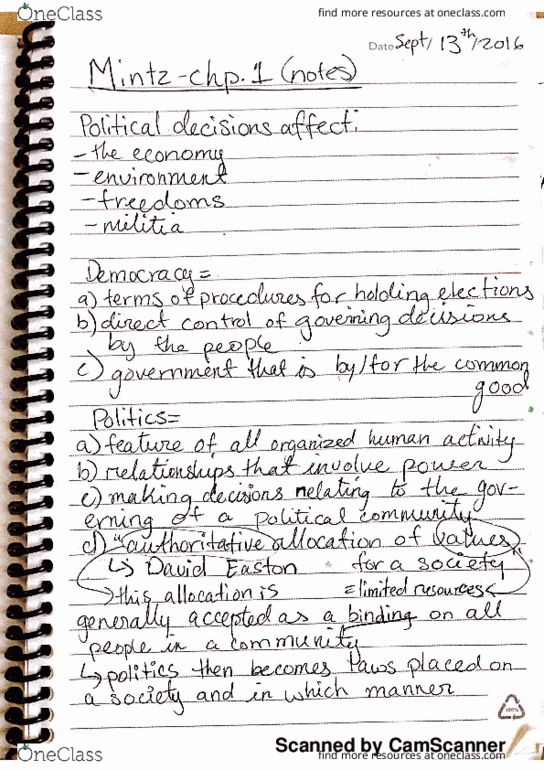 OneClass
find more resources at oneclass.com
Date Sept/ 13th/2016
Mintz-chp.1 (notes)
Political decisions affect:
-the economy
-environment
-freedoms
-militia
Democracy=
a) terms of procedures for holding elections
b) direct control of governing decisions
by the people
c) government that is by/for the common
good
Politics=
a) feature of all organized human activity
b) relationships that involve power
c) making decisions relating to the gov-
erning of a political community
d) "authoritative allocation of values
↳ David Easton for a society"
→this allocation is =limited resources←
generally accepted as a binding on all
people in a community
↳politics then becomes laws placed on
a society and in which manner
100%
Scanned by CamScanner
OneClass
find more resources at oneclass.com